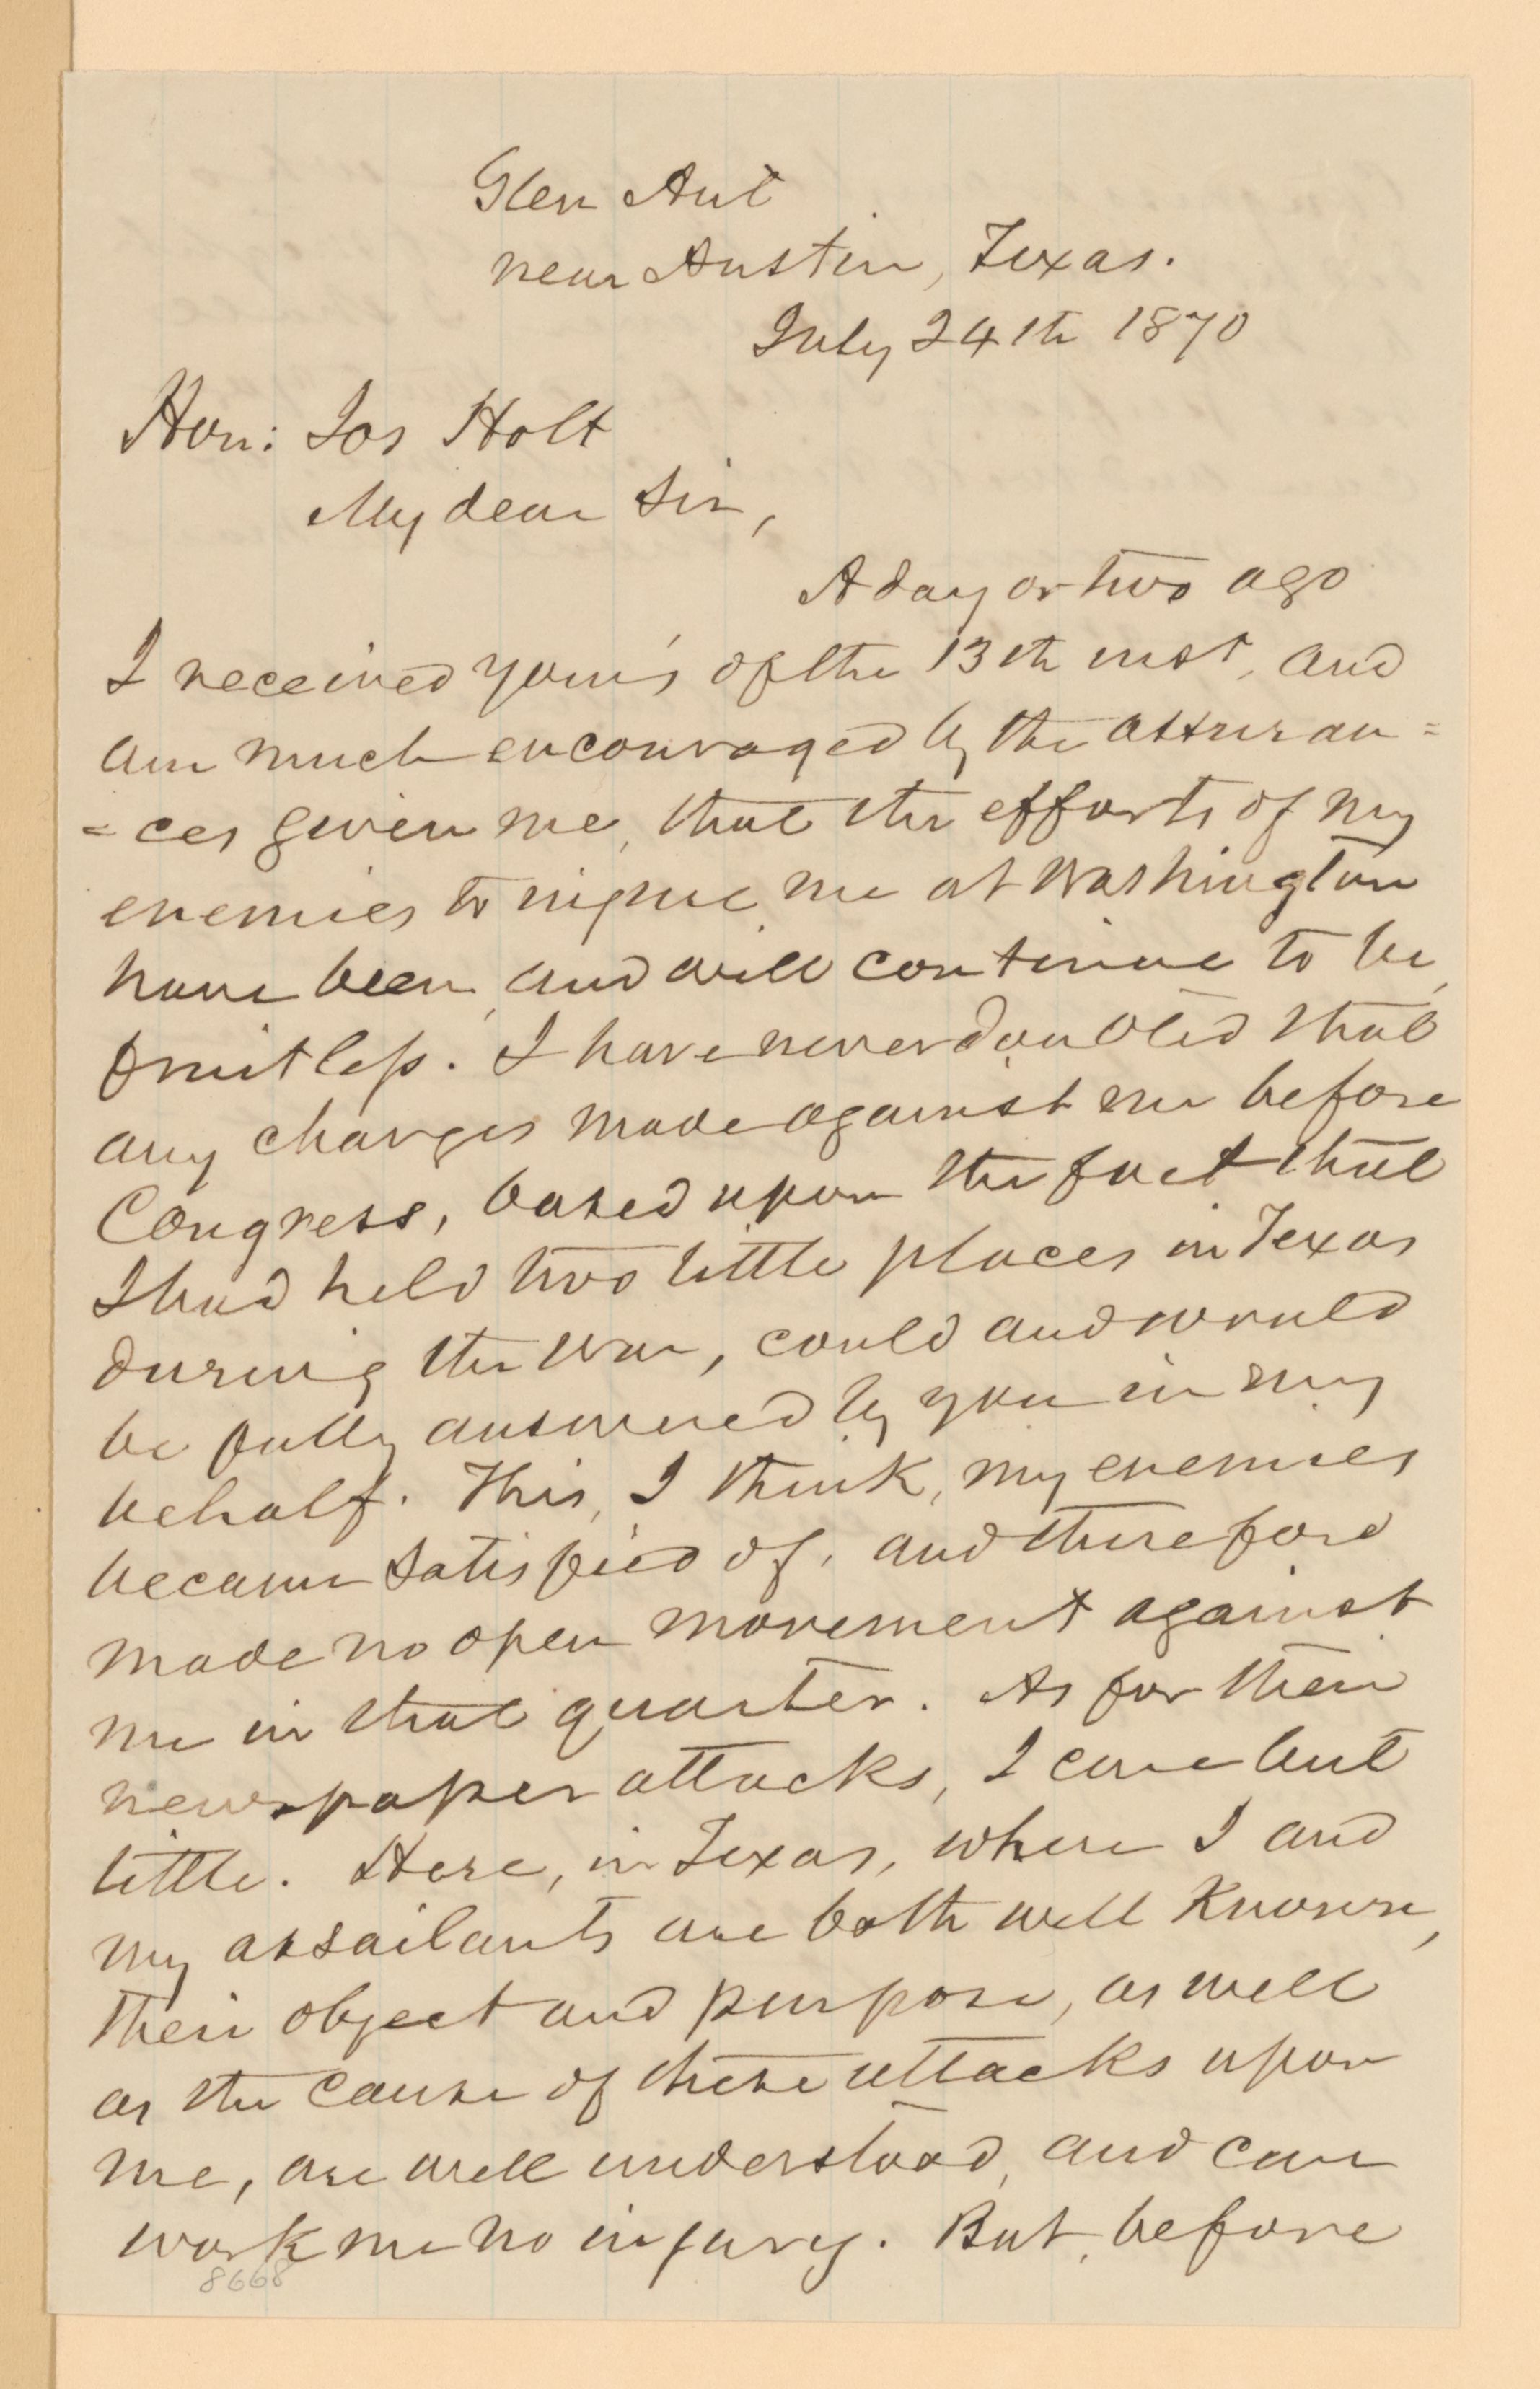 Glen Aut
near Austin, Texas.
July 24th 1870
Hon: Jos Holt
My dear Sir,
A day or two ago
I received your's of the 13th inst, and
am much encouraged by the assuran=
=ces given me, that the efforts of my
enemies to injure me at Washington
have been, and will continue to be,
fruitless. I have never doubted that
any charges made against me before
Congress, based upon the fact that
I had held two little places in Texas
during the war, could and would
be fully answered by you in my
behalf. This, I think, my enemies
became satisfied of, and therefore
made no open movement against
me in that quarter. As for their
newspaper attacks, I care but
little. Here, in Texas, where I and
my assailants are both well known,
their object and purpose, as well
as the cause of these attacks upon
me, are well understood, and can
work me no injury. But, before
8668